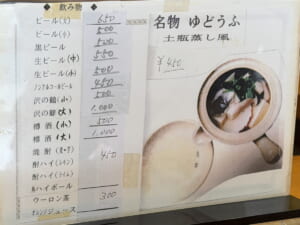 ◆ 飲み物 ◆
ビール(大) 650
ビール(小) 500
黒ビール 500
生ビール(中) 550
生ビール(小) 500
ノンアルコールビール 450
沢の鶴(小) 500
沢の鶴(大) 1.000
樽酒(小) 500
樽酒(大) 1.000
焼酎
酎ハイ(レモン) 450
酎ハイ(ライム)
ハイボール
ウーロン茶 300
オレンジジュース
名物 ゆどうふ
土瓶蒸し風
¥450